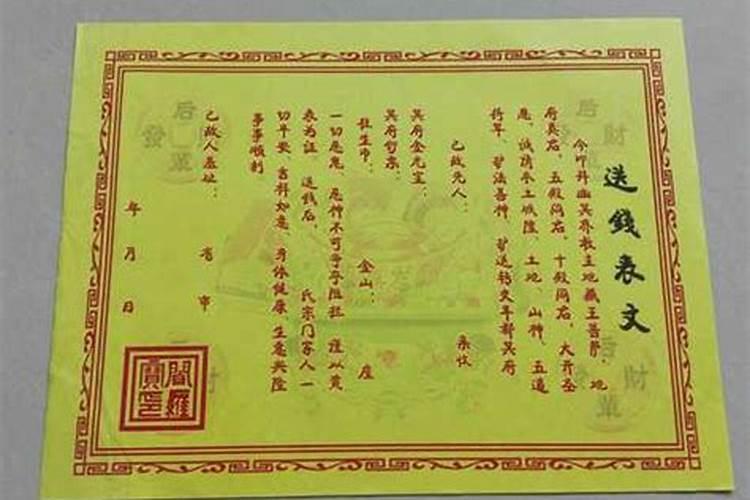 送錢表文
今叩拜幽冥界教主地藏王菩萨、地
府真君、五殿阎君、十殿阎君、大齐圣
恳、诚请本土城隍、土地、山神、五道
将军、护法善神、护送钱文早解冥府
已故先人： 亲收
冥府金元宝：
冥府哲票：
往生币： 金山： 座
一切恶鬼、恶神不可争夺阻拦、谨以黄
表为证、送钱后、 氏宗门家人一
切平安、吉祥如意、身体健康、生意兴隆
事事顺利
已故人墓地： 省 市
年 月 日
閻羅
寶印
后 發 財 單
后 發 財 單
后 發 財 單
財